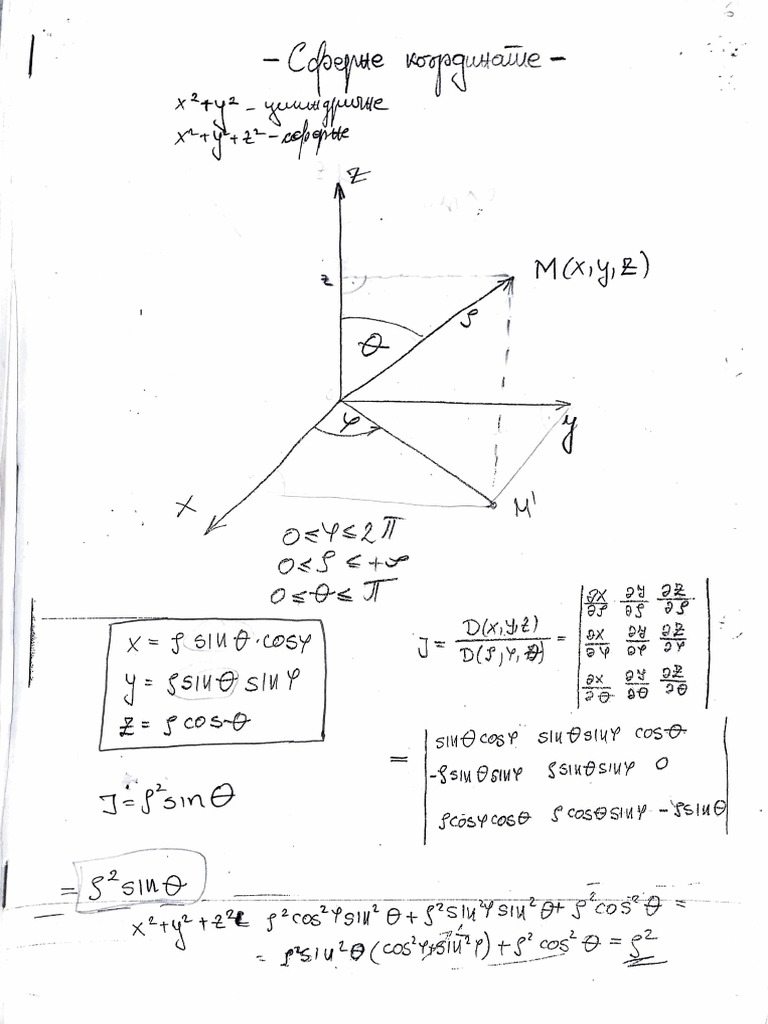 - Сферне координате -
x²+y² - цилиндричне
x²+y²+z² - сферне
z
z
M(x,y,z)
ρ
θ
φ
y
x
M'
0≤φ≤2π
0≤ρ≤+∞
0≤θ≤π
x = ρ sinθ·cosφ
y = ρ sinθ sinφ
z = ρ cosθ
J = D(x,y,z)/D(ρ,φ,θ) = | ∂x/∂ρ ∂y/∂ρ ∂z/∂ρ |
| ∂x/∂φ ∂y/∂φ ∂z/∂φ |
| ∂x/∂θ ∂y/∂θ ∂z/∂θ |
= | sinθcosφ sinθsinφ cosθ |
| -ρsinθsinφ ρsinθsinφ 0 |
| ρcosφcosθ ρcosθsinφ -ρsinθ |
J = ρ²sinθ
= ρ²sinθ
x²+y²+z² = ρ²cos²φsin²θ + ρ²sin²φsin²θ + ρ²cos²θ =
= ρ²sin²θ(cos²φ+sin²φ) + ρ²cos²θ = ρ²